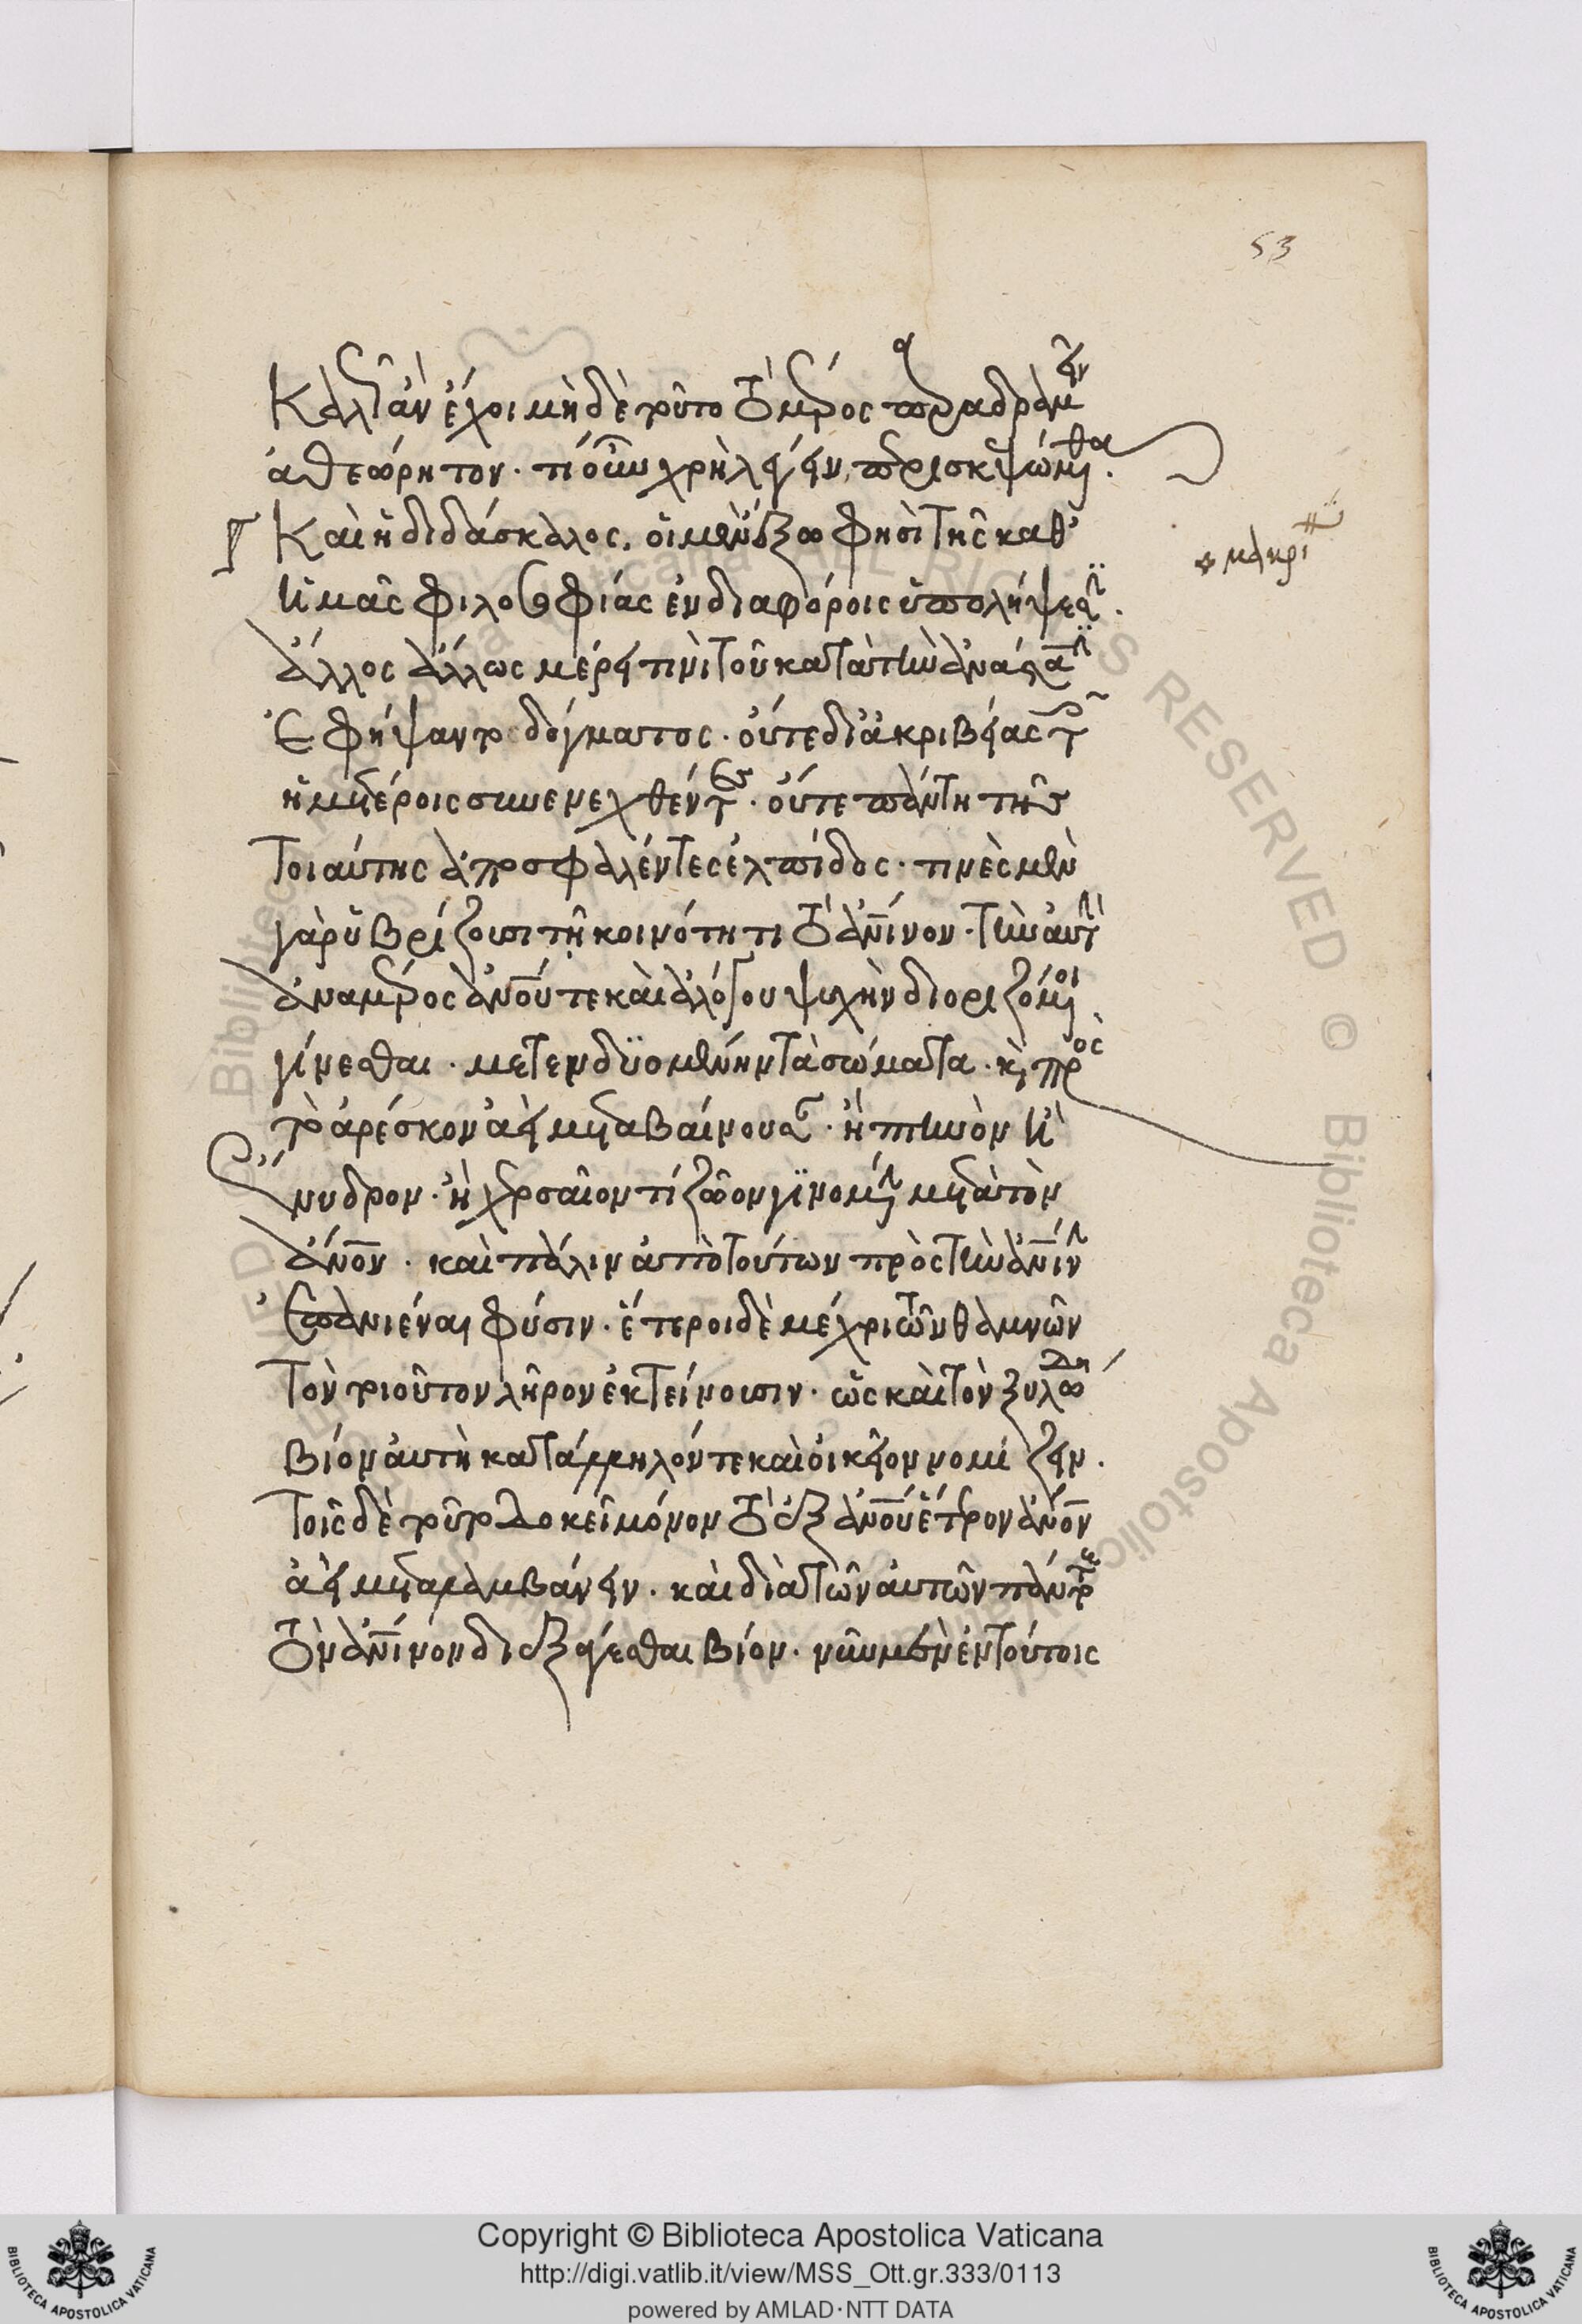 53
Καλῶς ἂν ἔχοι μηδὲ τοῦτο τὸ μέρος παραδραμεῖν
ἀθεώρητον. τί οὖν χρὴ λέγειν, περισκεψώμεθα.
Καὶ ἡ διδάσκαλος, οἱ μὲν ἔξω φησὶ τῆς καθ'
ἡμᾶς φιλοσοφίας ἐν διαφόροις ὑπολήψεσιν.
ἄλλος ἄλλως μέρει τινὶ τοῦ κατὰ τὴν ἀνάστασιν
ἐφήψαντο δόγματος. οὔτε δι' ἀκριβείας τοῖς
ἡμετέροις συνενεχθέντες. οὔτε πάντη τῆς
τοιαύτης ἀποσφαλέντες ἐλπίδος. τινὲς μὲν
γὰρ ὑβρίζουσι τῇ κοινότητι τὸ ἀνινον. τὴν αὐτὴν
ἀναμέρος ἀνου τε καὶ ἀλόγου ψυχὴν διοριζόμενοι
γίνεσθαι. μετενδυομένην τὰ σώματα. κ πρὸς
τὸ ἀρέσκον ἀεὶ μεταβαίνουσαν. ἢ πτηνὸν ἢ
ἔνυδρον. ἢ χερσαῖον τί ζῶον γινομένην μετὰ τὸν
ἀνον. καὶ πάλιν ἀπὸ τούτων πρὸς τὴν ἀνινην
ἐπανιέναι φύσιν. ἕτεροι δὲ μέχρι τῶν θάμνων
τὸν τοιοῦτον λῆρον ἐκτείνουσιν. ὡς καὶ τὸν ξυλώδη
βίον αὐτῇ κατάλληλόν τε καὶ οἰκεῖον νομίζειν.
τοῖς δὲ τοῦτο δοκεῖ μόνον τὸ ἐξ ἀνου ἕτερον ἀνον
ἀεὶ μεταλαμβάνειν. καὶ διὰ τῶν αὐτῶν πάντοτε
τὸν ἀνινον διεξάγεσθαι βίον. νῦν μὲν ἐν τούτοις
Copyright © Biblioteca Apostolica Vaticana
http://digi.vatlib.it/view/MSS_Ott.gr.333/0113
powered by AMLAD·NTT DATA
BIBLIOTECA APOSTOLICA VATICANA
BIBLIOTECA APOSTOLICA VATICANA